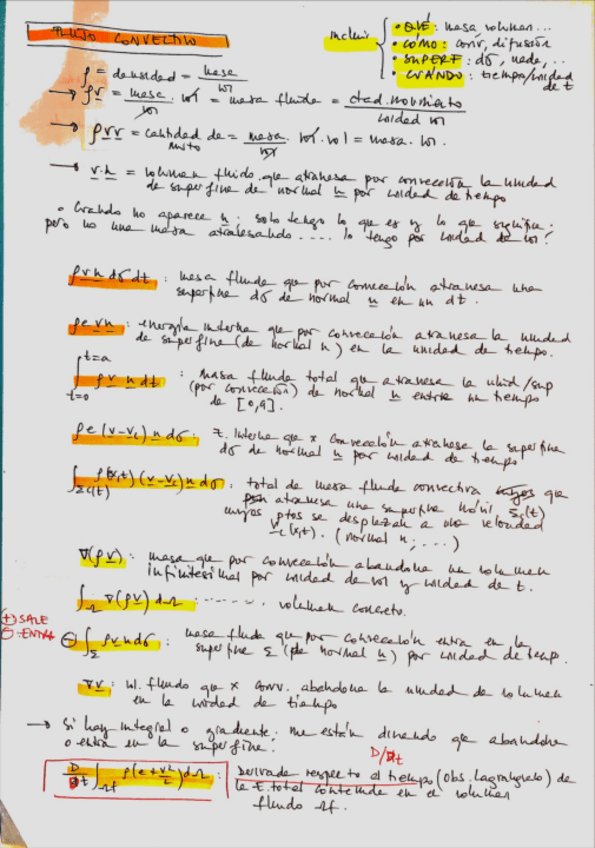 FLUJO CONVECTIVO
incluir
• QUÉ: masa, volumen...
• CÓMO: conv, difusión
• SUPERF: dσ, unde, ..
• CUANDO: tiempo/unidad de t
ρ = densidad = masa/vol
→ ρv = masa/vol · vol = masa fluido = ctad. movimiento/unidad vol
→ ρvv = cantidad de mvto = masa/vol · vol · vol = masa · vol.
→ v.n = volumen fluido que atraviesa por convección la unidad
de superficie de normal n por unidad de tiempo
• Cuando no aparece n: solo tengo lo que es y lo que significa.
pero no una masa atravesando .... lo tengo por unidad de vol!
ρ v n dσ dt : masa fluida que por convección atraviesa una
superficie dσ de normal n en un dt.
ρ e v n : energía interna que por convección atraviesa la unidad
de superficie (de normal n) en la unidad de tiempo.
∫ t=0 t=a ρ v n dt : masa fluida total que atraviesa la unid/sup
(por convección) de normal n entre un tiempo
de [0,a].
ρ e (v - vc) n dσ : E. interna que x convección atraviesa la superficie
dσ de normal n por unidad de tiempo
∫Σc(t) ρ(x,t) (v - vc) n dσ : total de masa fluida convectiva que
atraviesa una superficie móvil Σc(t)
cuyos ptos se desplazan a una velocidad
vc(x,t). (normal n; ....)
∇(ρ v) : masa que por convección abandona un volumen
infinitesimal por unidad de vol y unidad de t.
∫Ω ∇(ρ v) dΩ ........ volumen concreto.
(+) SALE
⊖ ENTRA
⊖ ∫Σ ρ v n dσ : masa fluida que por convección entra en la
superficie Σ (de normal n) por unidad de tiemp.
∇ v : vol. fluido que x conv. abandona la unidad de volumen
en la unidad de tiempo
→ Si hay integral o gradiente; me están diciendo que abandona
o entra en la superficie.
D/Dt
D/Dt ∫Ωf ρ(e + v²/2) dΩ : Derivada respecto al tiempo (obs. Lagrangiano) de
la E. total contenida en el volumen
fluido Ωf.